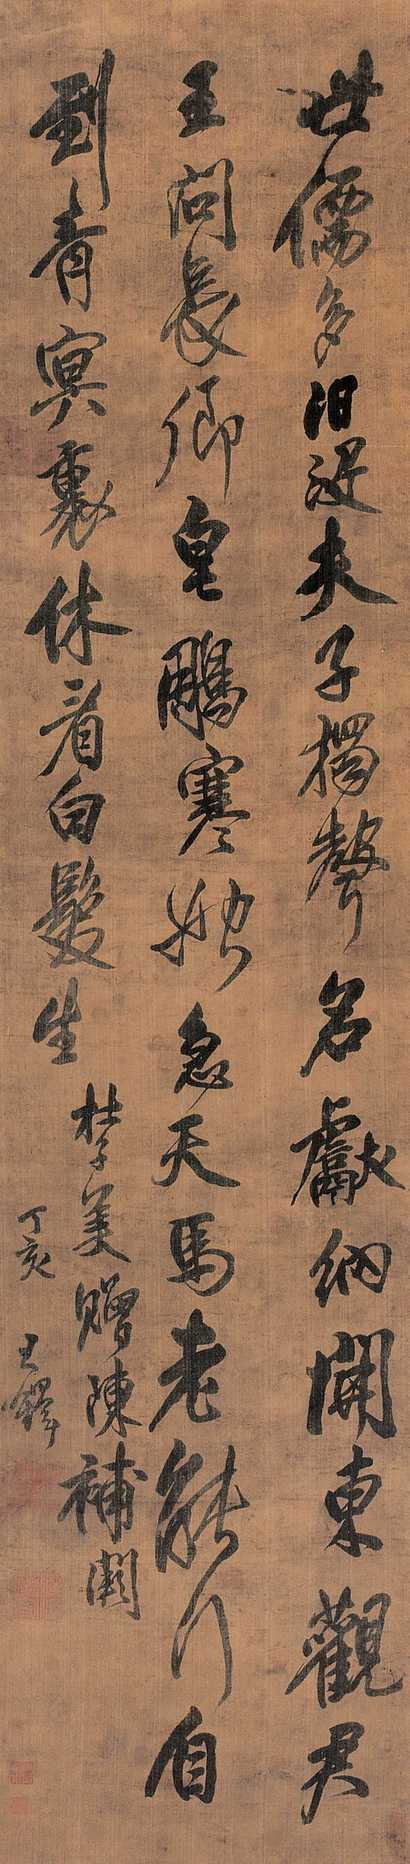 世儒多汩沒夫子獨聲名獻納開東觀君
王問長卿皂鵰寒始急天馬老能行自
到青冥裏休看白髮生
杜子美贈陳補闕
丁亥 王鐸